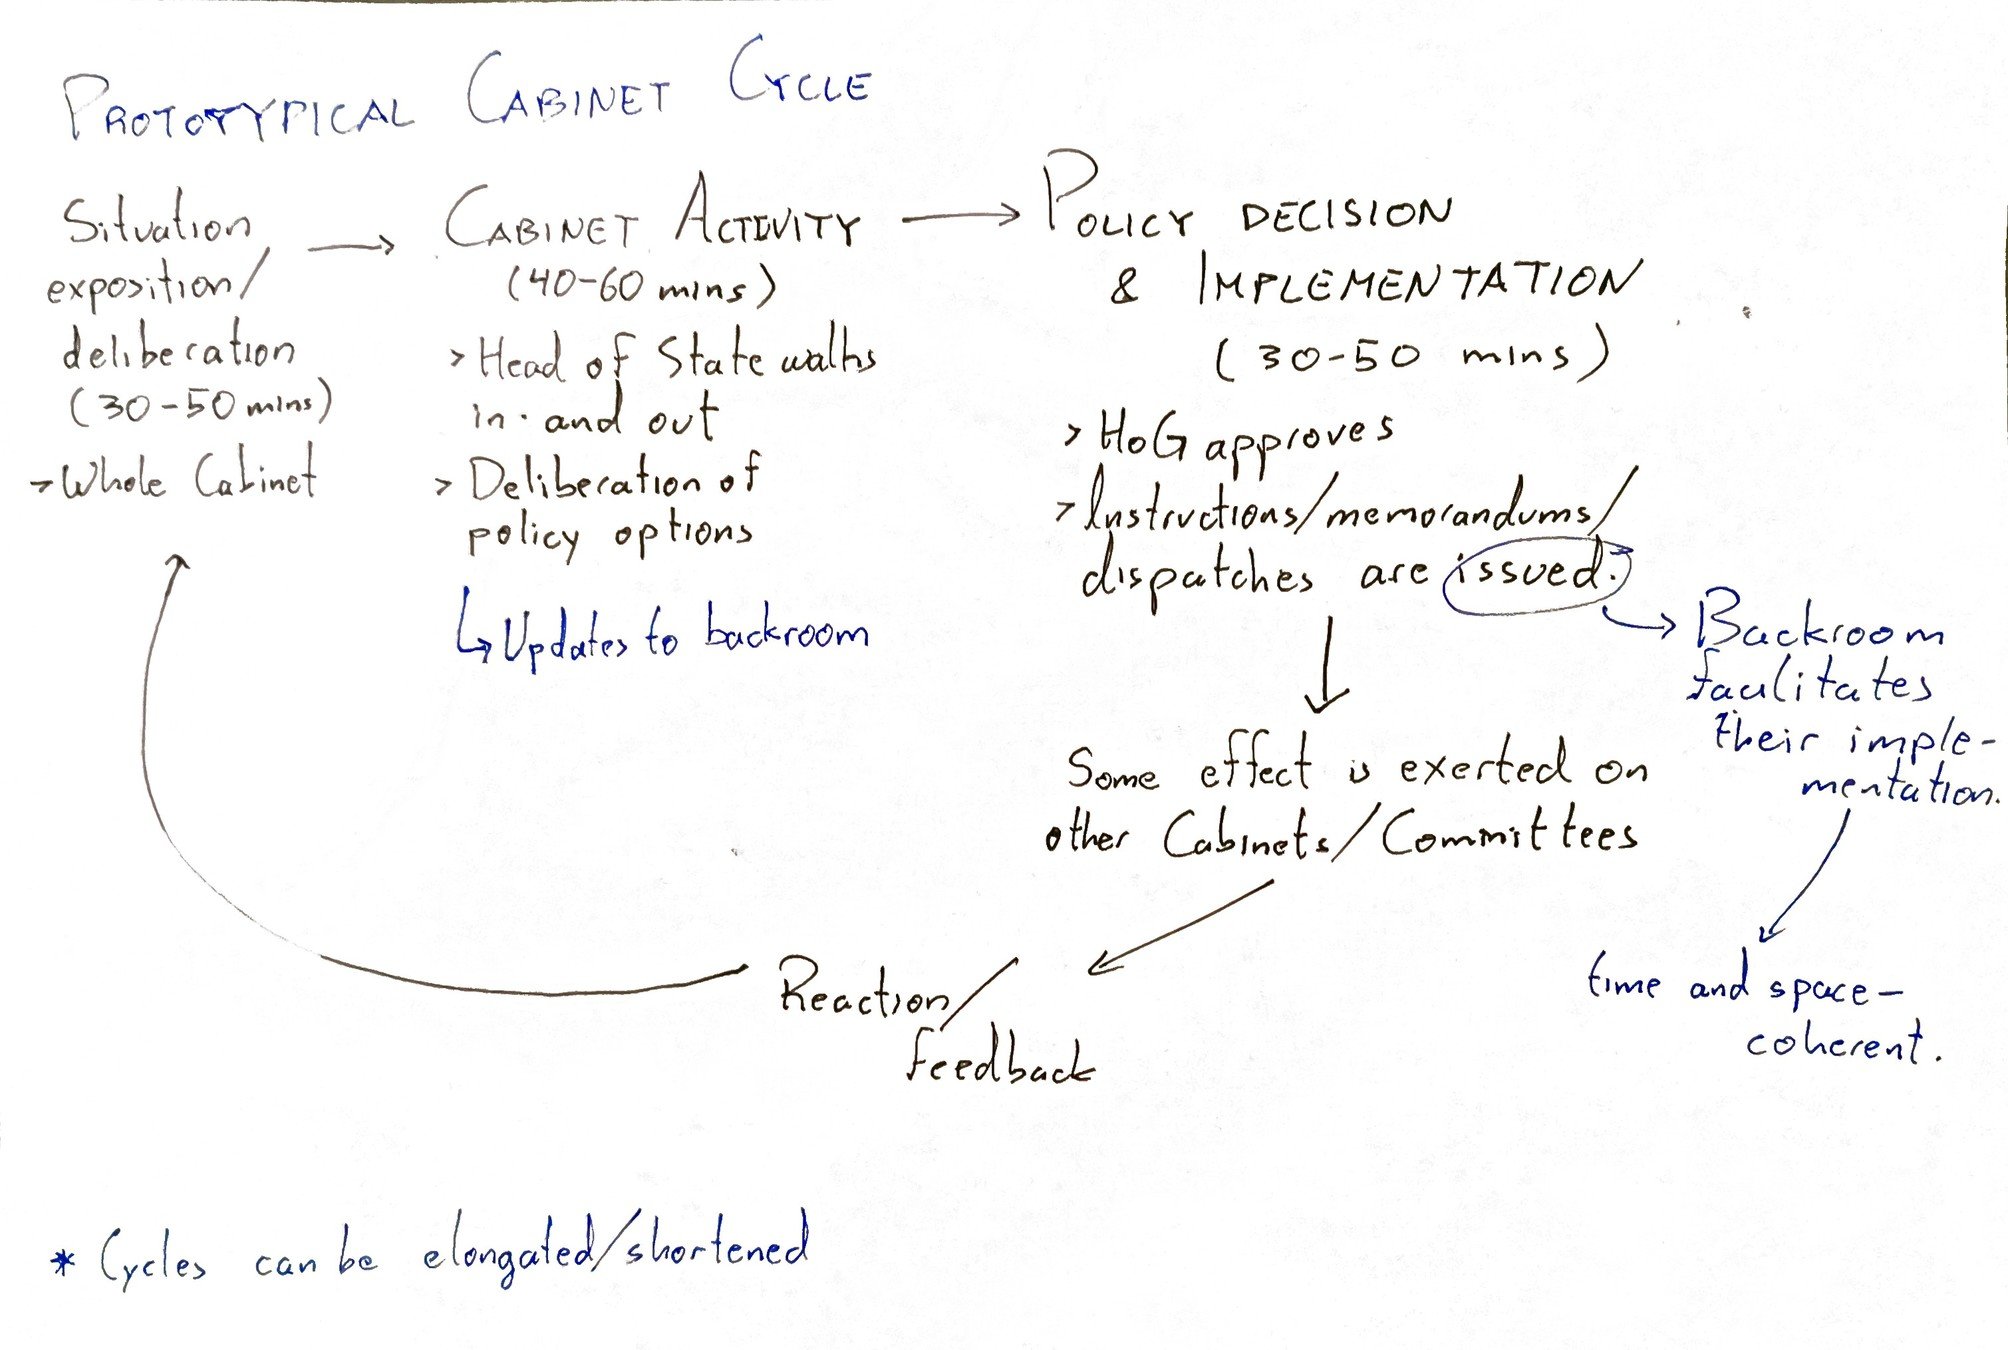 PROTOTYPICAL CABINET CYCLE
Situation
exposition/
deliberation
(30-50 mins)
> Whole Cabinet
CABINET ACTIVITY
(40-60 mins)
> Head of State walks
in and out
> Deliberation of
policy options
↳ Updates to backroom
POLICY DECISION
& IMPLEMENTATION
(30-50 mins)
> HoG approves
> Instructions/memorandums/
dispatches are issued.
Backroom
facilitates
their imple-
mentation.
time and space-
coherent.
Some effect is exerted on
other Cabinets/Committees
Reaction/
feedback
* Cycles can be elongated/shortened